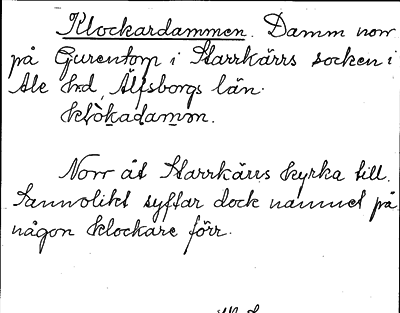 Klockardammen. Damm norr
på Gurentorp i Starrkärrs socken i
Ale hd, Älfsborgs län.
klòkadamɷn.
Norr åt Starrkärrs kyrka till.
Sannolikt syftar dock namnet på
någon klockare förr.